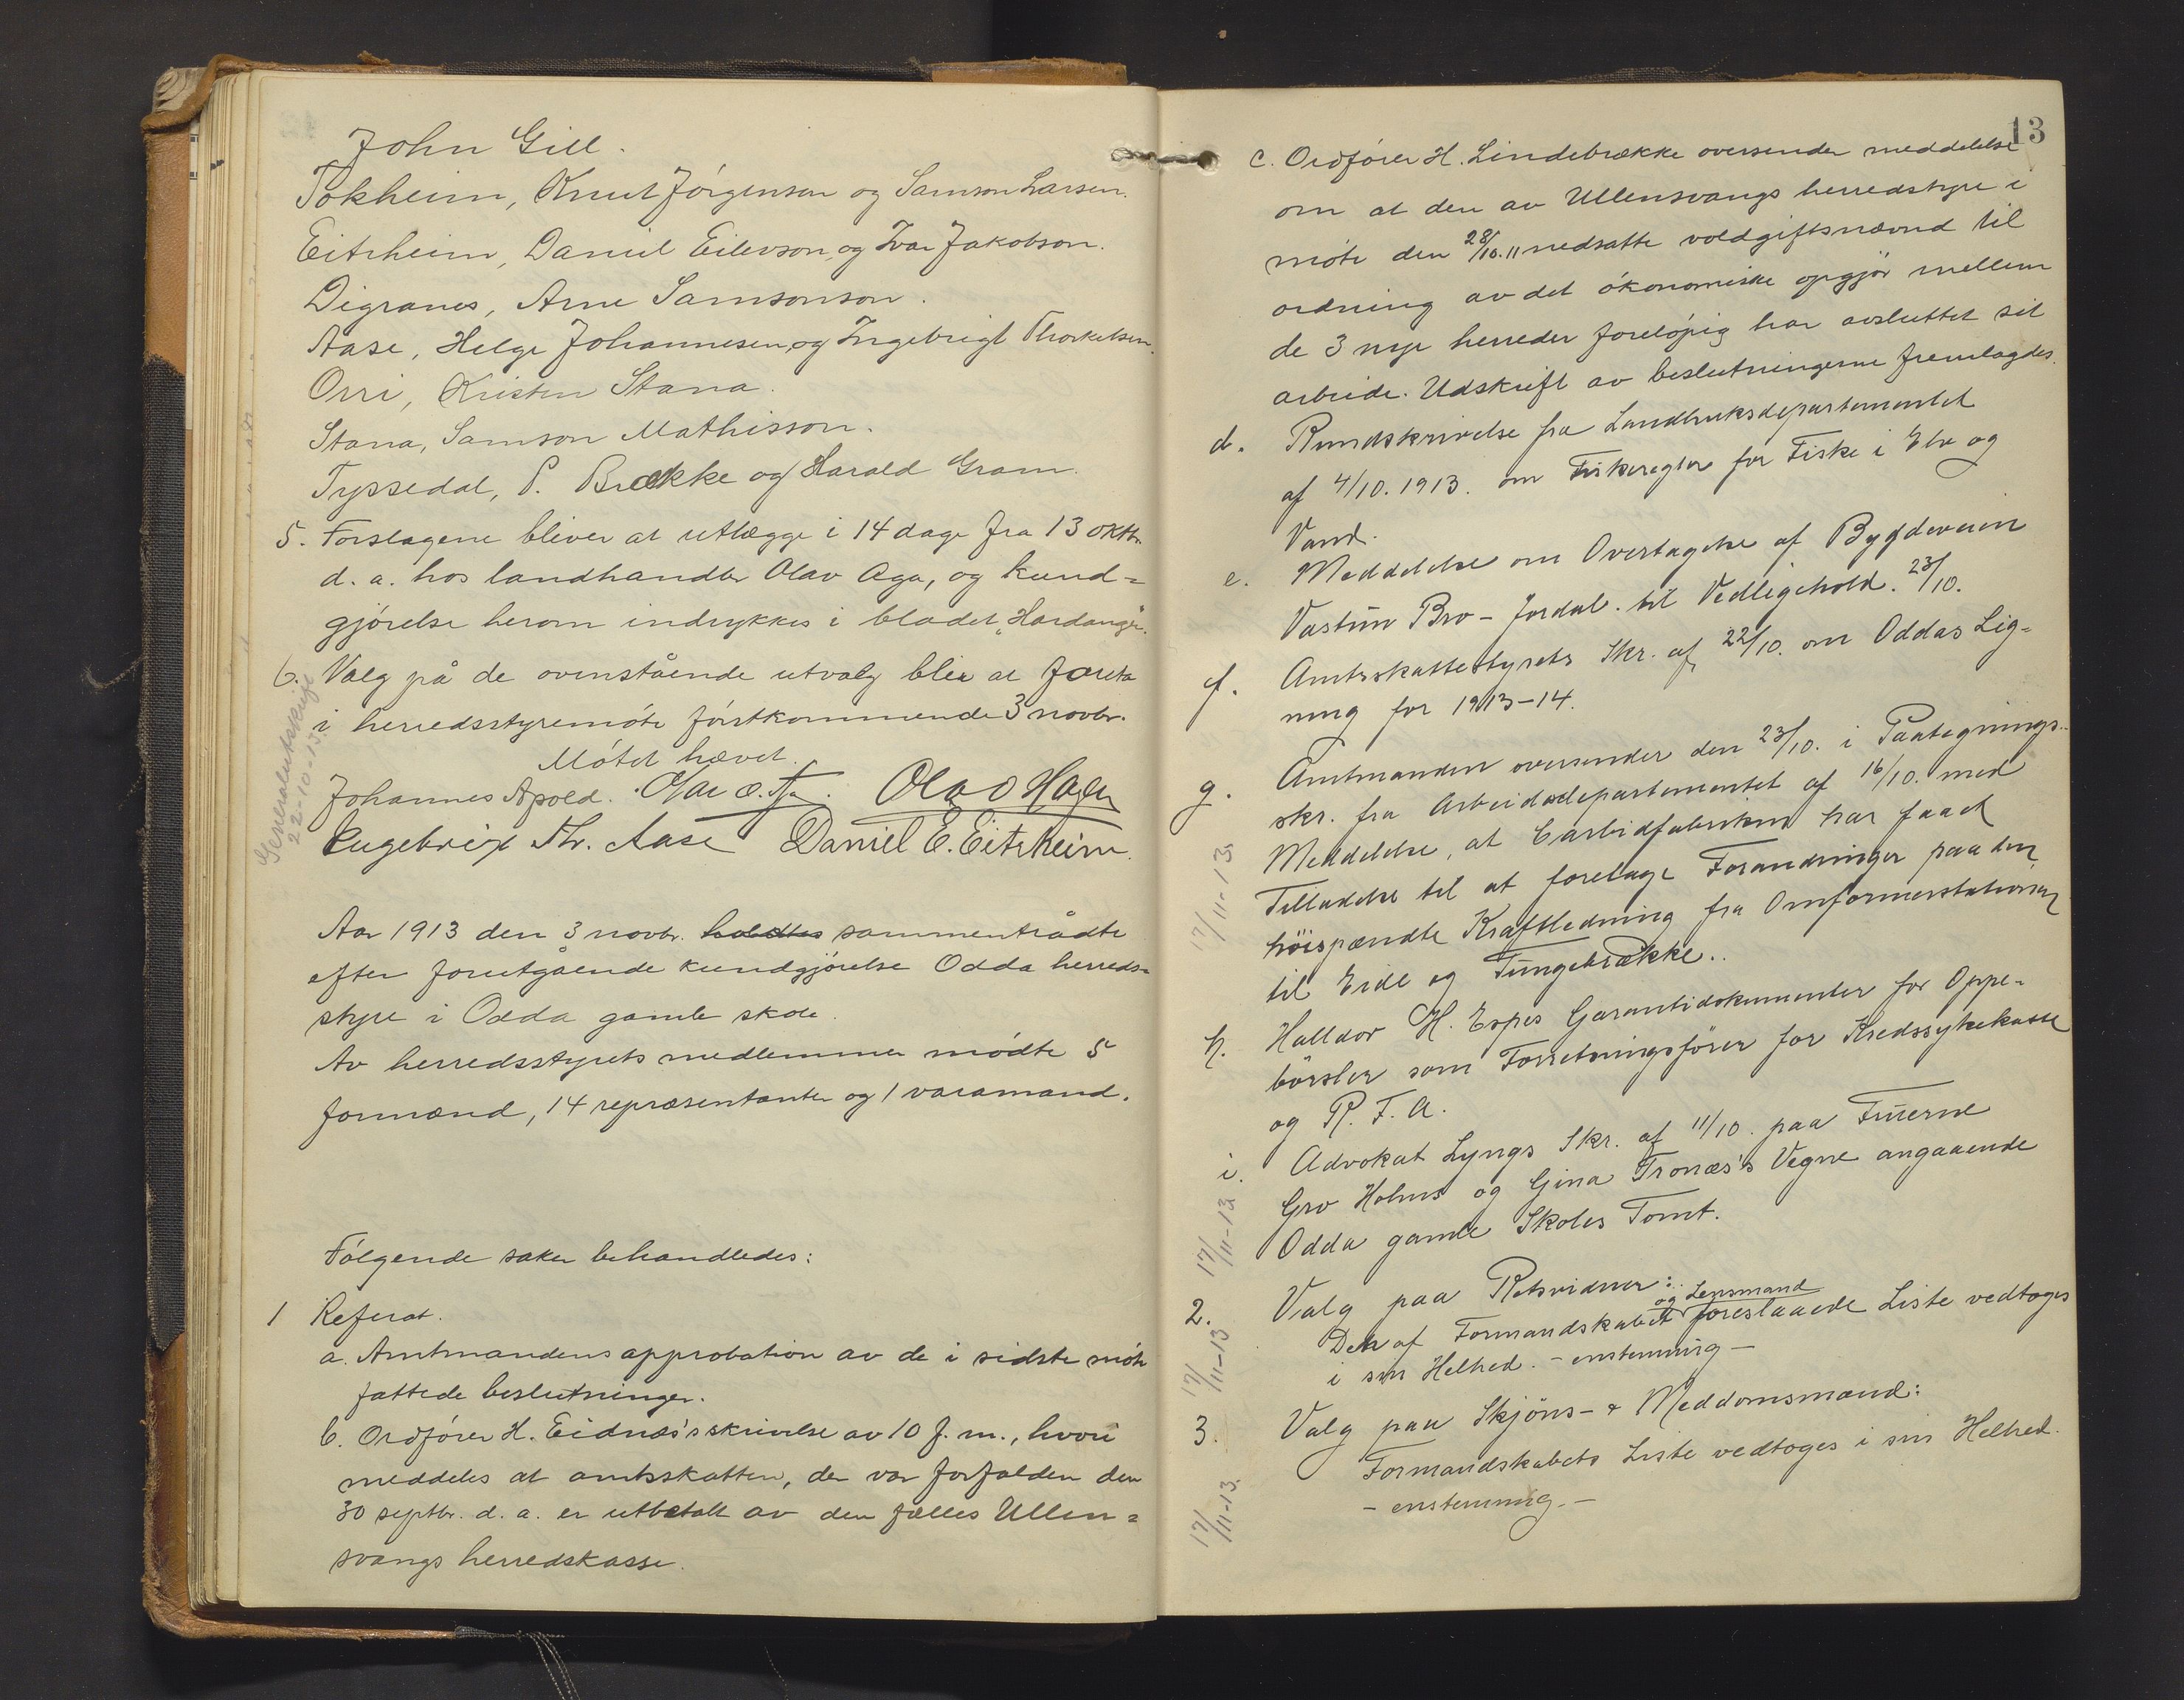 John Gill.
Tokheim, Knut Jörgenson og Samson Larsen.
Eitrheim, Daniel Eilevson og Ivar Jakobson.
Digranes, Arne Samsonson.
Aase, Helge Johannesen og Ingebrigt Thorkelsen.
Orri, Kristen Stana.
Stana, Samson Mathisson.
Tyssedal, P. Brække og Harald Gram.
5. Forslagene bliver at utlægge i 14 dage fra 13 oktbr.
d. a. hos landhandler Olav Aga, og kund=
gjörelse herom indrykkes i bladet "Hardanger".
6. Valg på de ovenstående utvalg blir at foreta
i herredsstyremöte förstkommende 3 novbr.
Mötet hævet.
Generalutskrift
22-10-13.
Johannes Apold. Olav O. Aga. Olav O Hagen
Engebrigt Th. Aase Daniel E. Eitrheim.
Aar 1913 den 3 novbr. holdtes sammentrådte
efter forutgående kundgjörelse Odda herreds=
styre i Odda gamle skole.
Av herredsstyrets medlemmer mödte 5
formænd, 14 repræsentanter og 1 varamand.
Fölgende saker behandledes:
1 Referat.
a. Amtmandens approbation av de i sidste möte
fattede beslutninger.
b. Ordförer H. Eidnes's skrivelse av 10 f. m., hvori
meddeles at amtsskatten, der var forfalden den
30 septbr. d. a. er utbetalt av den fælles Ullen=
svangs herredskasse.
13
c. Ordförer H. Lindebrække oversender meddelelse
om at den av Ullensvangs herredstyre i
möte den 28/10.11 nedsatte voldgiftsnævnd til
ordning av det ökonomiske opgjör mellem
de 3 nye herreder forelöpig har avsluttet sit
arbeide. Udskrift av beslutningerne fremlagdes.
d. Rundskrivelse fra Landbruksdepartementet
af 4/10. 1913. om Fiskeregler for Fiske i Elv og
Vand.
e. Meddelelse om Overtagelse af Bygdeveien
Vastun Bro - Jordal. til Vedligehold. 23/10.
f. Amtsskattestyrets Skr. af 22/10. om Oddas Lig=
ning for 1913-14.
g. Amtmanden oversender den 23/10. i Paategnings-
skr. fra Arbeidsdepartementet af 16/10. med
Meddelelse, at Carbidfabriken har faaet
17/11-13.
Tilladelse til at foretage Forandringer paa den
höispændte Kraftledning fra Omformerstationen
til Eide og Tungebrække..
h. Halldor H. Espes Garantidokumenter for Oppe-
börsler som Forretningsförer for Kredssykekasse
og R. F. A.
i. Advokat Lyngs Skr. af 11/10. paa Fruerne
Gro Holms og Gina Tronæs's Vegne angaaende
17/11-13
Odda gamle Skoles Tomt.
2. Valg paa Retsvidner:
og Lensmand
Den af Formandskabet foreslaaede Liste vedtoges
17/11-13
i sin Helhed. - enstemmig -
3. Valg paa Skjöns- & Meddomsmænd:
Formandskabets Liste vedtoges i sin Helhed.
17/11-13.
- enstemmig. -